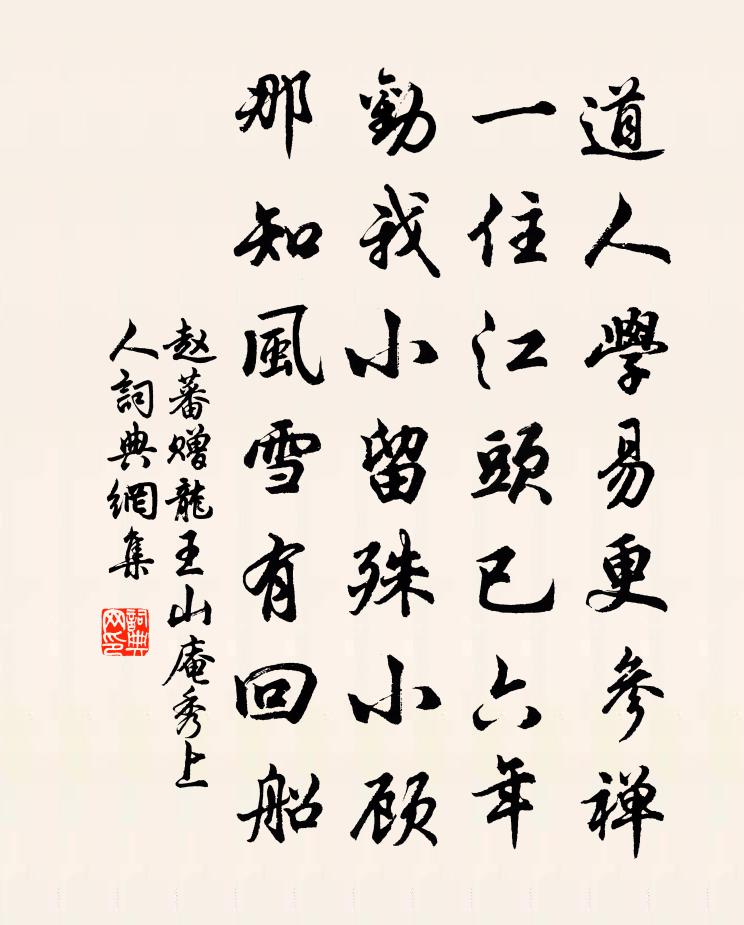 道人學易更參禪
一住江頭已六年
勸我小留殊小顾
那知風雪有回船
赵蕃赠龍王山庵秀上
人詞典網集
詞典
网印